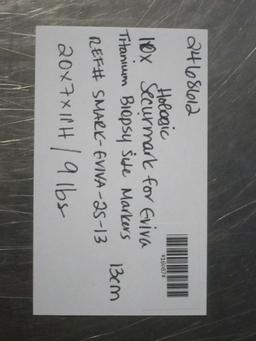 2468612
Hologic
10x Securmark for Eviva
Titanium Biopsy Site Markers
REF# SMARK-EVIVA-2S-13 13cm
20x7x11H / 9 lbs